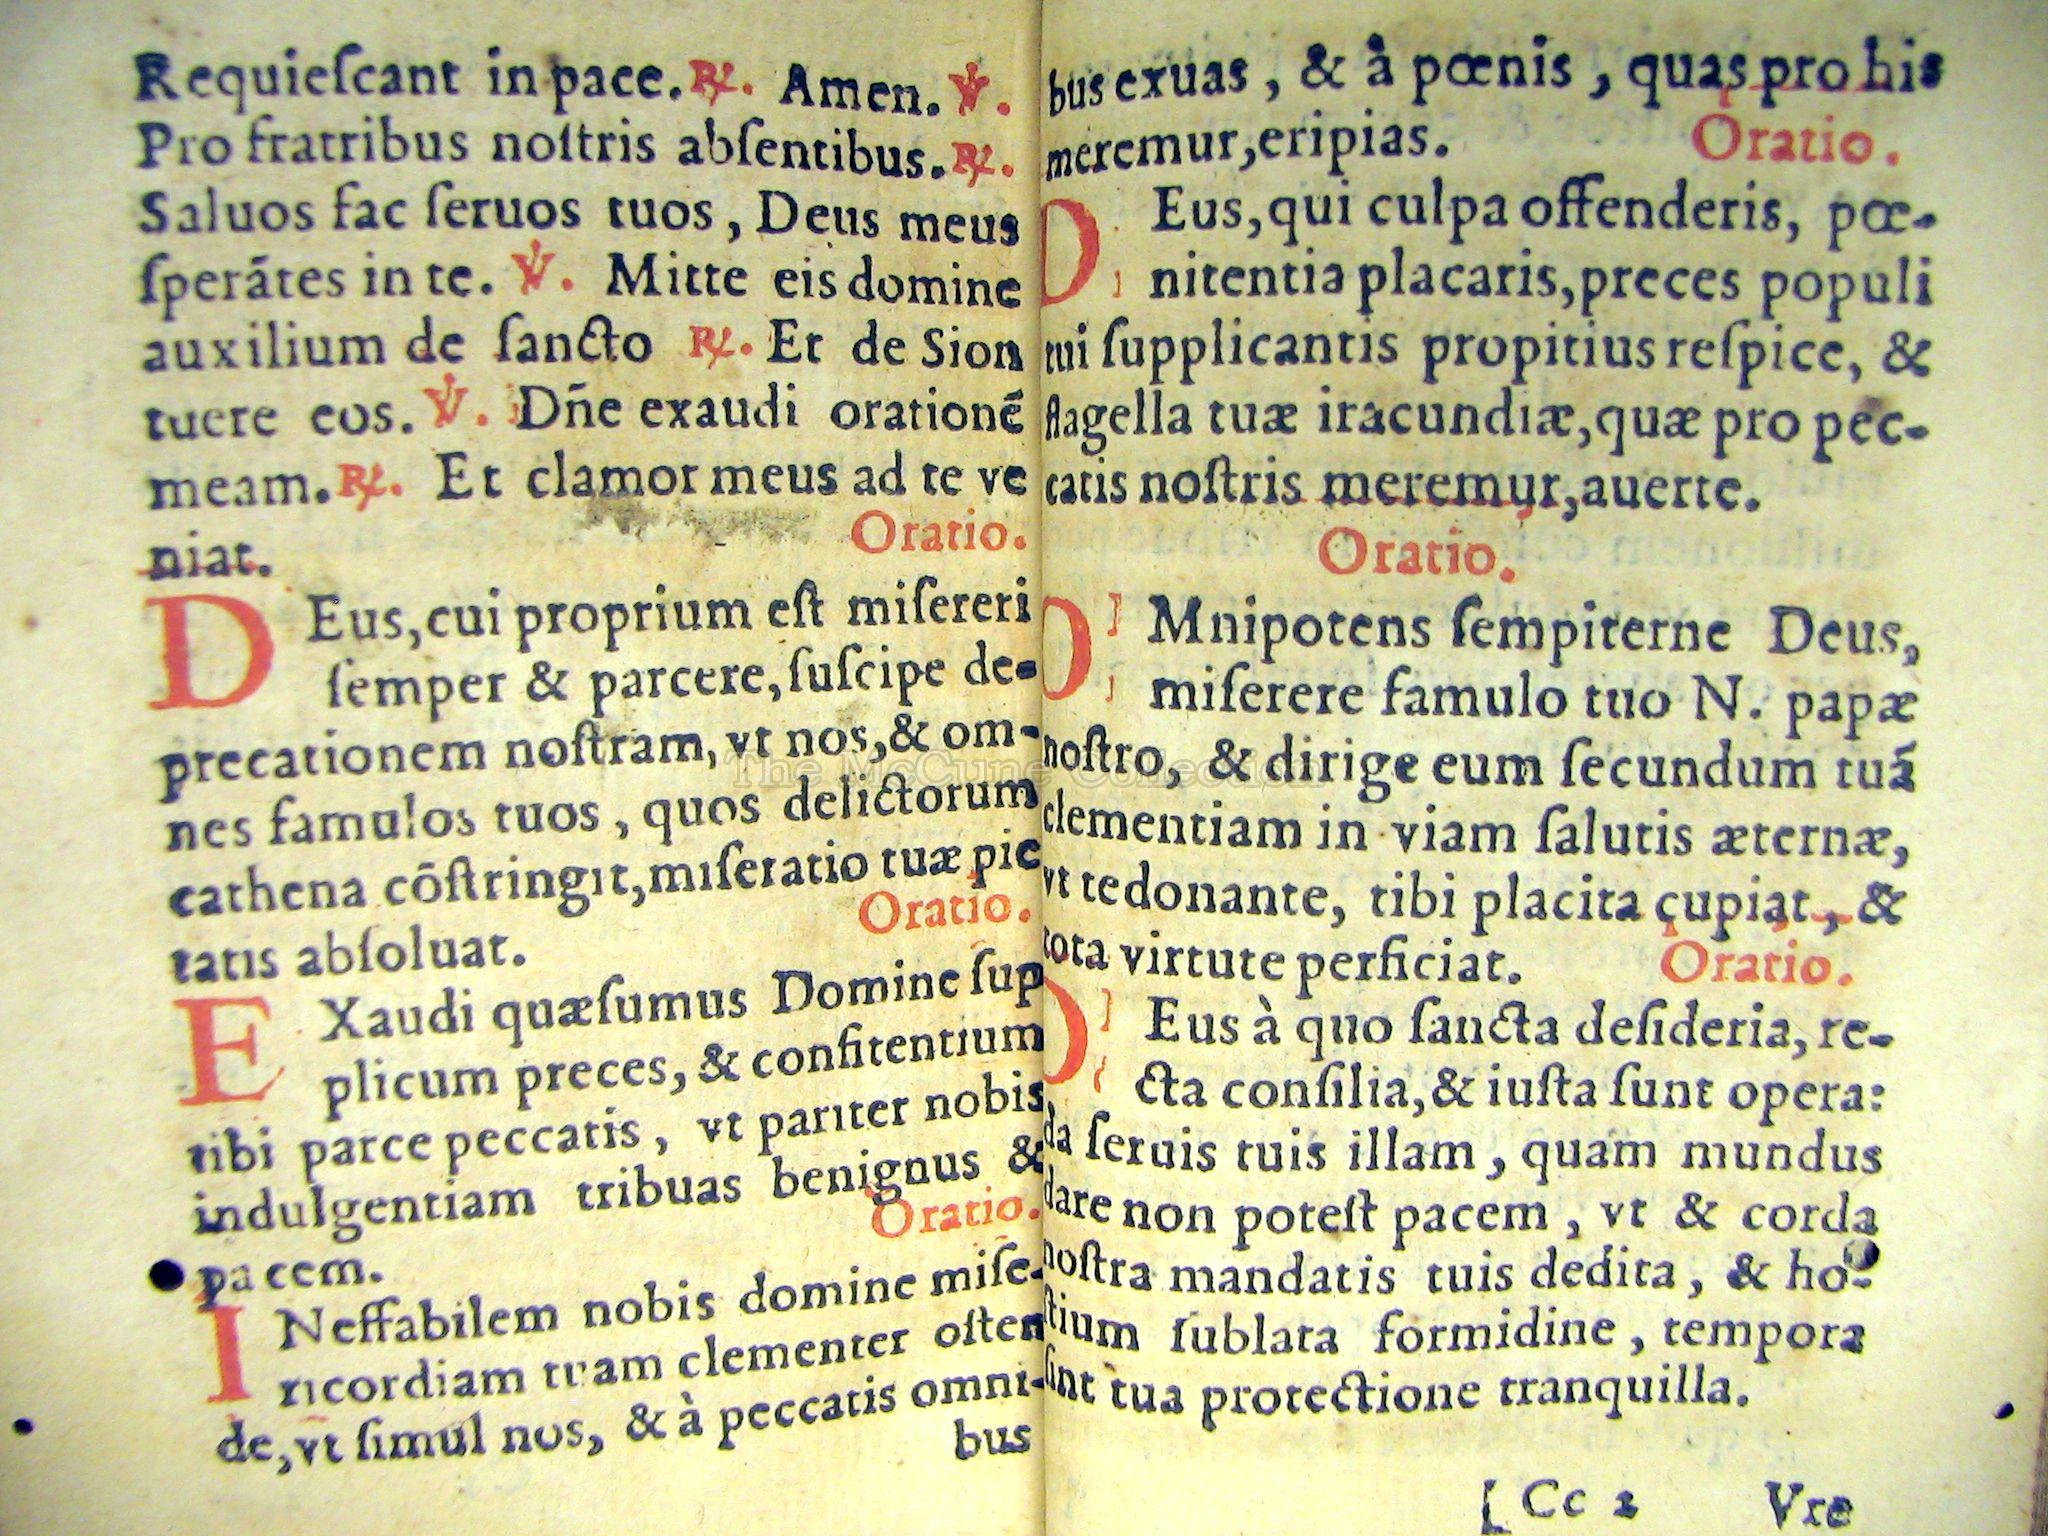 Requieſcant in pace. ℟. Amen. ℣.
Pro fratribus noſtris abſentibus. ℟.
Saluos fac ſeruos tuos, Deus meus
ſperātes in te. ℣. Mitte eis domine
auxilium de ſancto ℟. Et de Sion
tuere eos. ℣. Dn̄e exaudi orationē
meam. ℟. Et clamor meus ad te ve
niat.
Oratio.
DEus, cui proprium eſt miſereri
ſemper & parcere, ſuſcipe de-
precationem noſtram, vt nos, & om-
nes famulos tuos, quos delictorum
cathena cōſtringit, miſeratio tuæ pie
tatis abſoluat.
Oratio.
EXaudi quæſumus Domine ſup
plicum preces, & confitentium
tibi parce peccatis, vt pariter nobis
indulgentiam tribuas benignus &
pacem.
Oratio.
INeffabilem nobis domine miſe-
ricordiam tuam clementer oſten
de, vt ſimul nos, & à peccatis omni-
bus
bus exuas, & à pœnis, quas pro his
meremur, eripias.
Oratio.
DEus, qui culpa offenderis, pœ-
nitentia placaris, preces populi
tui ſupplicantis propitius reſpice, &
flagella tuæ iracundiæ, quæ pro pec-
catis noſtris meremur, auerte.
Oratio.
OMnipotens ſempiterne Deus,
miſerere famulo tuo N. papæ
noſtro, & dirige eum ſecundum tuā
clementiam in viam ſalutis æternæ,
vt te donante, tibi placita cupiat, &
tota virtute perficiat.
Oratio.
DEus à quo ſancta deſideria, re-
cta conſilia, & iuſta ſunt opera:
da ſeruis tuis illam, quam mundus
dare non poteſt pacem, vt & corda
noſtra mandatis tuis dedita, & ho-
ſtium ſublata formidine, tempora
ſint tua protectione tranquilla.
[Cc 2 Vre
The McCune Collection